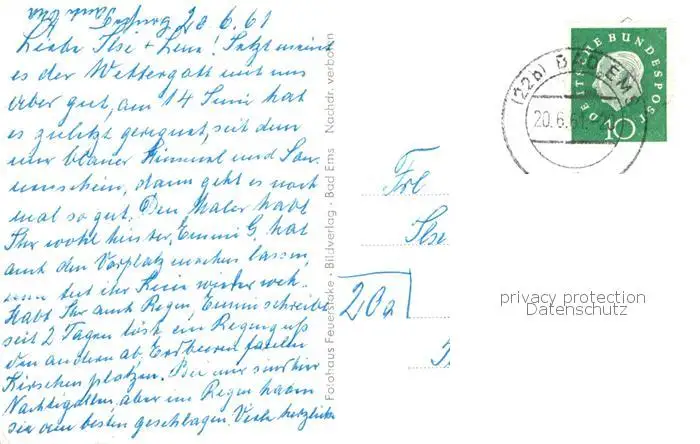 20.6.61
Liebe Ilse + Lene! Jetzt meint
es der Wettergott mit uns
aber gut, am 14 Juni hat
es zuletzt geregnet, seit dem
nur blauer Himmel und Son-
nenschein, dann geht es noch
mal so gut. Den Maler habt
Ihr wohl hinter, Emmi G. hat
auch den Vorplatz machen lassen,
nun tut ihr Knie wieder weh.
Habt Ihr auch Regen, Emmi schreibt
seit 2 Tagen löst ein Regenguß
den andern ab, Erdbeeren faulen
Kirschen platzen. Bei mir sind hier
Nachtigallen, aber im Regen haben
sie am besten geschlagen. Viele herzliche
Fotohaus Feuerstake · Bildverlag · Bad Ems Nachdr. verboten
DEUTSCHE BUNDESPOST
10
(22b) BAD EMS
20.6.61
Frl
Ilse
20a
privacy protection
Datenschutz